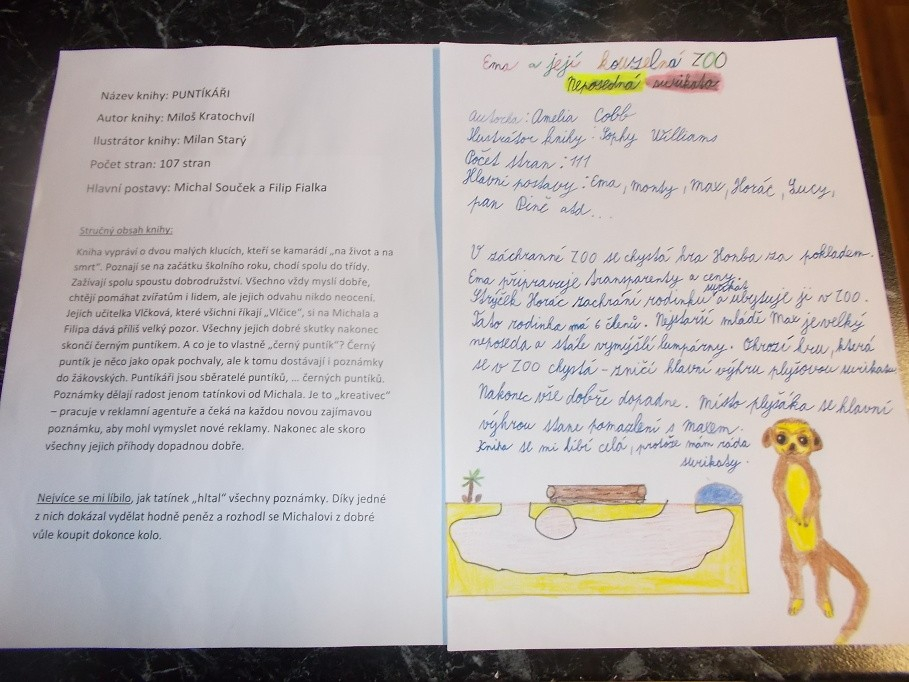 Název knihy: PUNTÍKÁŘI
Autor knihy: Miloš Kratochvíl
Ilustrátor knihy: Milan Starý
Počet stran: 107 stran
Hlavní postavy: Michal Souček a Filip Fialka
Stručný obsah knihy:
Kniha vypráví o dvou malých klucích, kteří se kamarádí „na život a na
smrt". Poznají se na začátku školního roku, chodí spolu do třídy.
Zažívají spolu spoustu dobrodružství. Všechno vždy myslí dobře,
chtějí pomáhat zvířatům i lidem, ale jejich odvahu nikdo neocení.
Jejich učitelka Vlčková, které všichni říkají „Vlčice", si na Michala a
Filipa dává příliš velký pozor. Všechny jejich dobré skutky nakonec
skončí černým puntíkem. A co je to vlastně „černý puntík"? Černý
puntík je něco jako opak pochvaly, ale k tomu dostávají i poznámky
do žákovských. Puntíkáři jsou sběratelé puntíků, ... černých puntíků.
Poznámky dělají radost jenom tatínkovi od Michala. Je to „kreativec"
– pracuje v reklamní agentuře a čeká na každou novou zajímavou
poznámku, aby mohl vymyslet nové reklamy. Nakonec ale skoro
všechny jejich příhody dopadnou dobře.
Nejvíce se mi líbilo, jak tatínek „hltal" všechny poznámky. Díky jedné
z nich dokázal vydělat hodně peněz a rozhodl se Michalovi z dobré
vůle koupit dokonce kolo.
Ema a její kouzelná ZOO
Neposedná surikata
autorka: Amelia Cobb
Ilustrátor knihy: Sophy Williams
Počet stran: 111
Hlavní postavy: Ema, monty, Max, Horác, Lucy,
pan Pině atd...
V záchranné ZOO se chystá hra Honba za pokladem.
Ema připravuje transparenty a ceny.
Strýček Horác zachrání rodinku surikat a ubytuje ji v ZOO.
Tato rodinka má 6 členů. Nejstarší mládě Max je velký
neposeda a stále vymýšlí lumpárny. Ohrozí hru, která
se v ZOO chystá - zničí hlavní výhru plyšovou surikatu
Nakonec vše dobře dopadne. Místo plyšáka se hlavní
výhrou stane pomazlení s Maxem.
Kniha se mi líbí celá, protože mám ráda
surikaty.